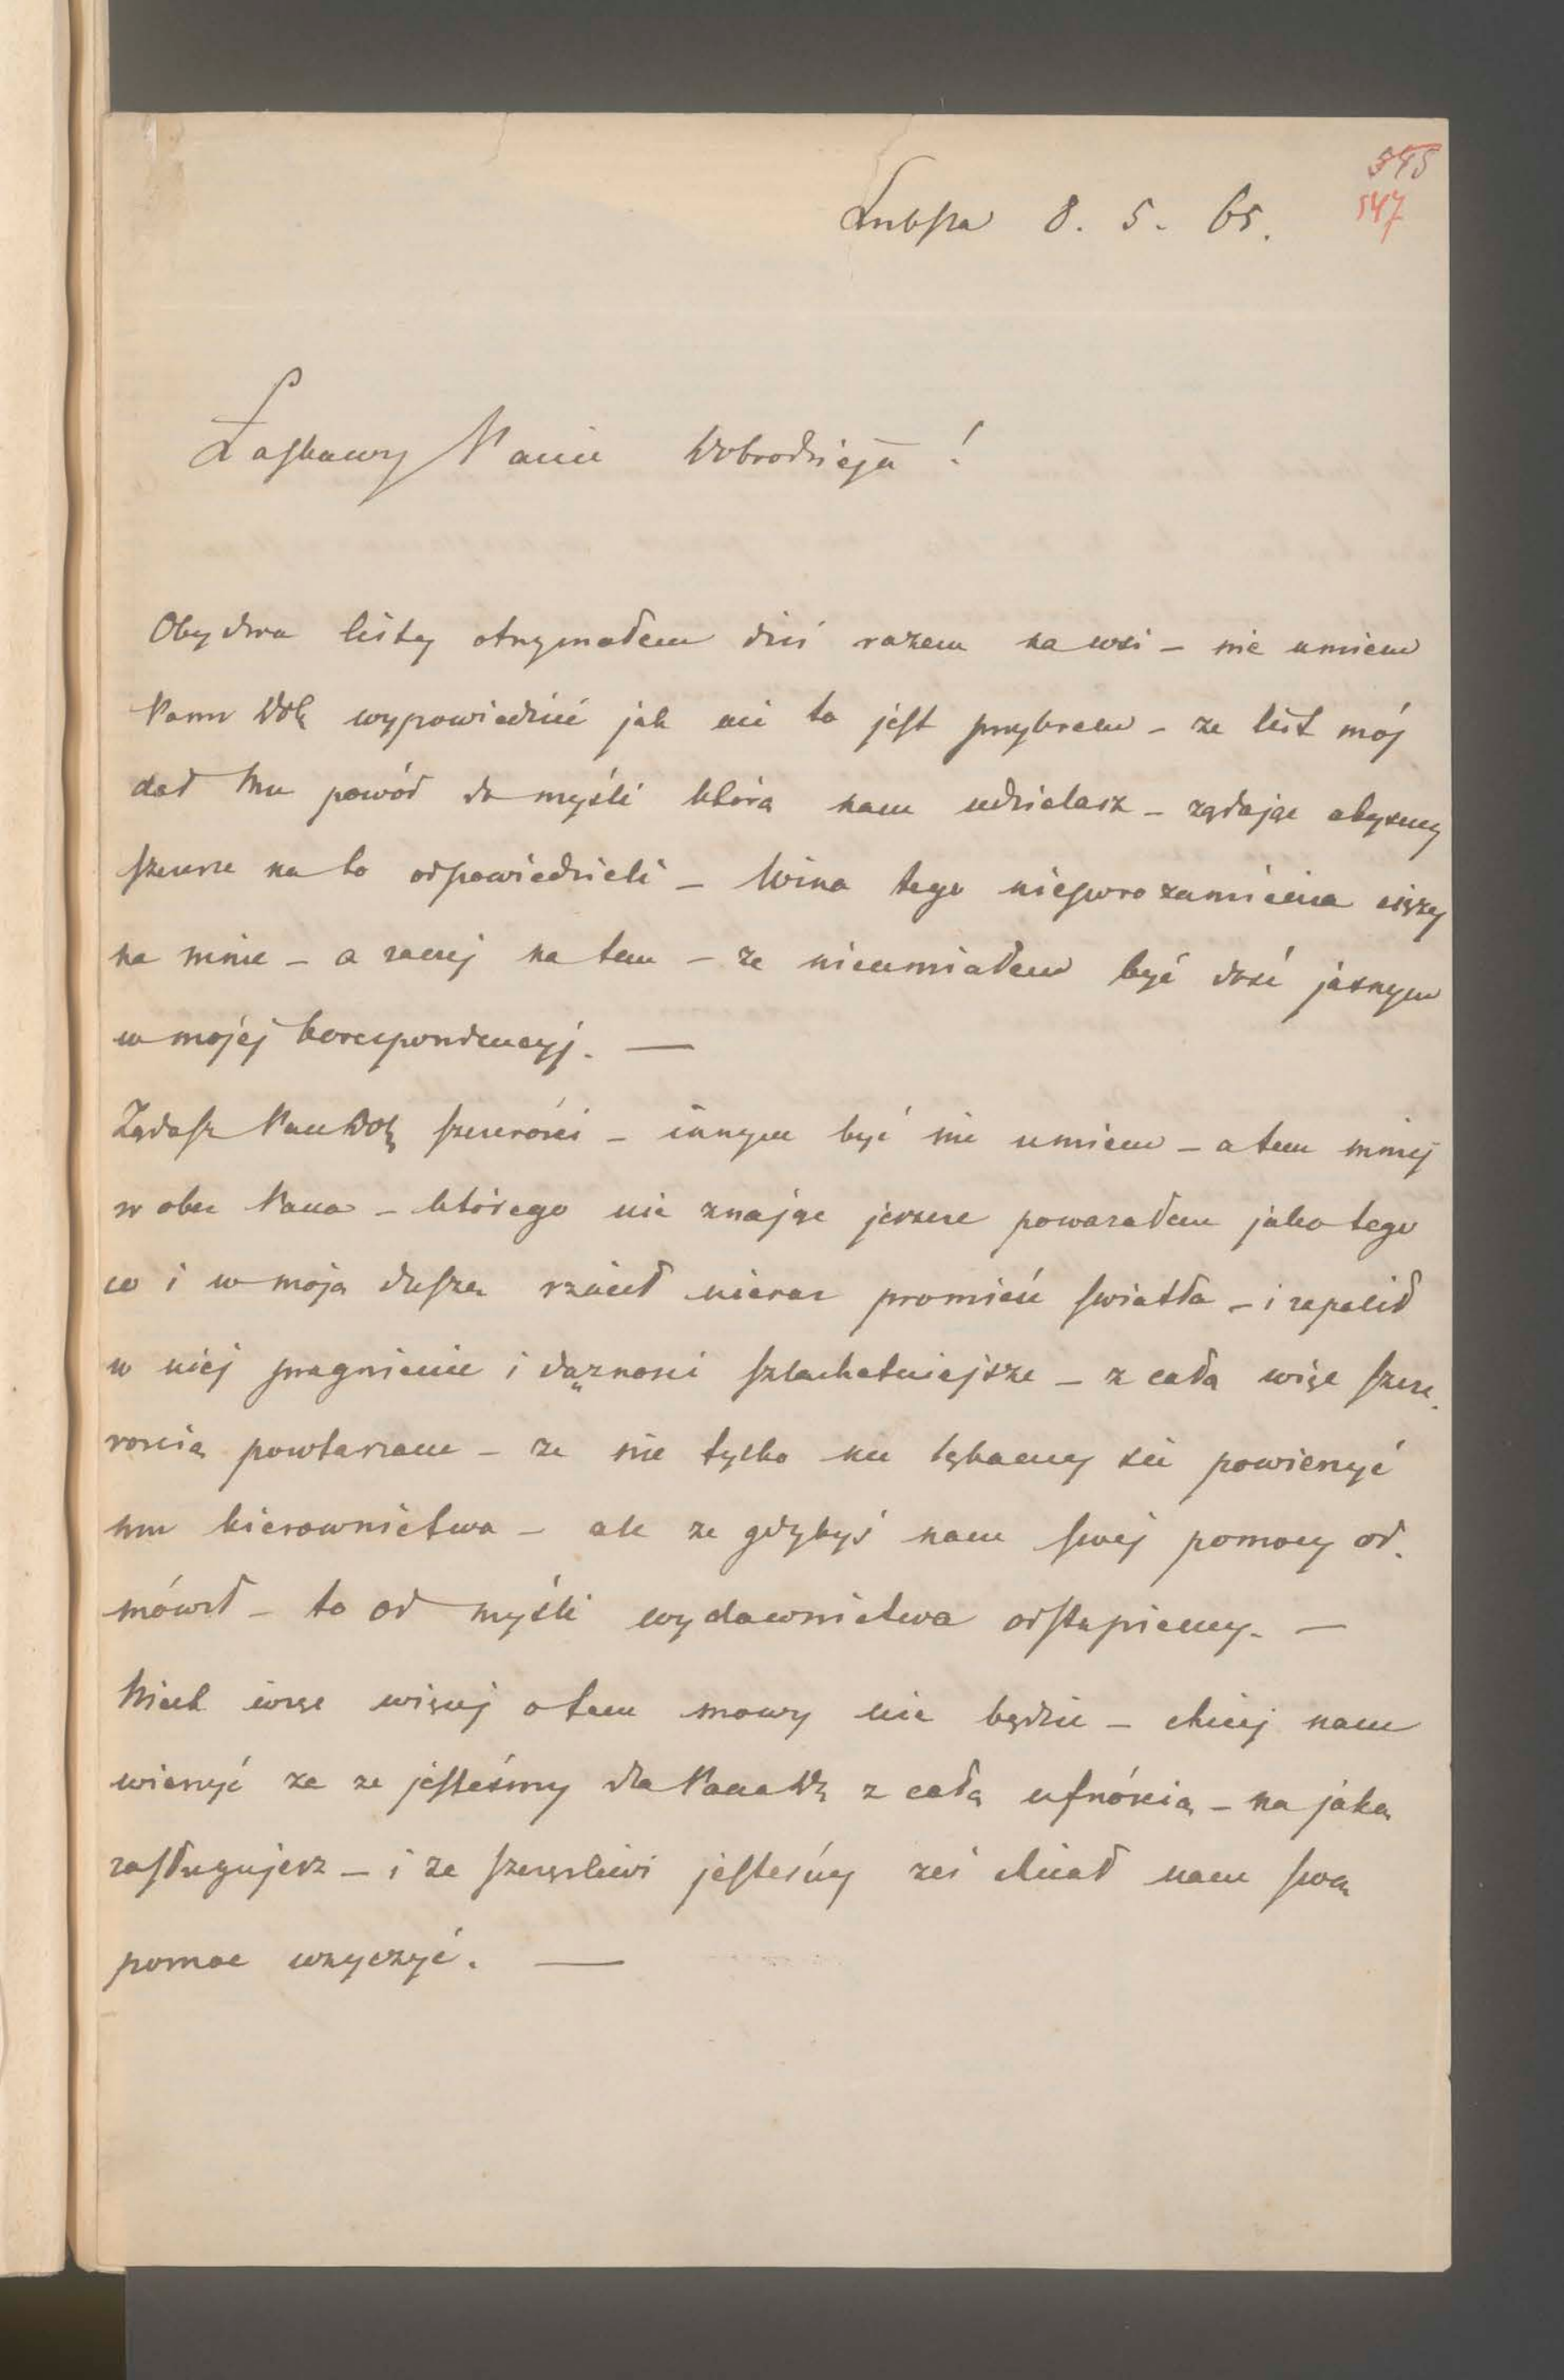 545
547
Lubsza 8. 5. 65.
Łaskawy Panie Dobrodzieju!
Obydwa listy otrzymałem dziś razem na wsi – nie umiem
Panu Dob. wypowiedzieć jak mi to jest przykrem – ze list mój
dał Mu powód do myśli którą nam udzielasz – ządając abyśmy
szczerze na to odpowiedzieli – Wina tego nieporozumienia cięzy
na mnie – a raczej na tem – ze nieumiałem być dość jasnym
w mojej korespondencyj. —
Ządasz Pan Dob. szczerości – innym być nie umiem – a tem mniej
w obec Pana – którego nie znając jeszcze powazałem jako tego
co i w moją duszę rzucił nieraz promień swiatła – i zapalił
w niej pragnienie i dąznosci szlachetniejsze – z całą więc szcze-
roscią powtarzam – ze nie tylko nie lękamy sie powierzyć
mu kierownictwa – ale ze gdybyś nam swej pomocy od-
mówił – to od myśli wydawnictwa odstąpiemy. —
Niech więc więcej o tem mowy nie będzie – chciej nam
wierzyć ze ze jesteśmy dla Pana D. z całą ufnóscią – na jaką
zasługujesz – i ze szczęsliwi jesteśmy ześ chciał nam swą
pomoc uzyczyć. —